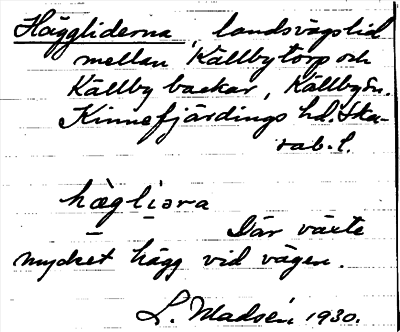 Häggliderna, landsvägslid
mellan Källbytorp och
Källby backar, Källby sn.
Kinnefjärdings hd. Ska-
rab. l.
hæ̀gliɔra
Där växte
mycket hägg vid vägen.
L. Madsén 1930.